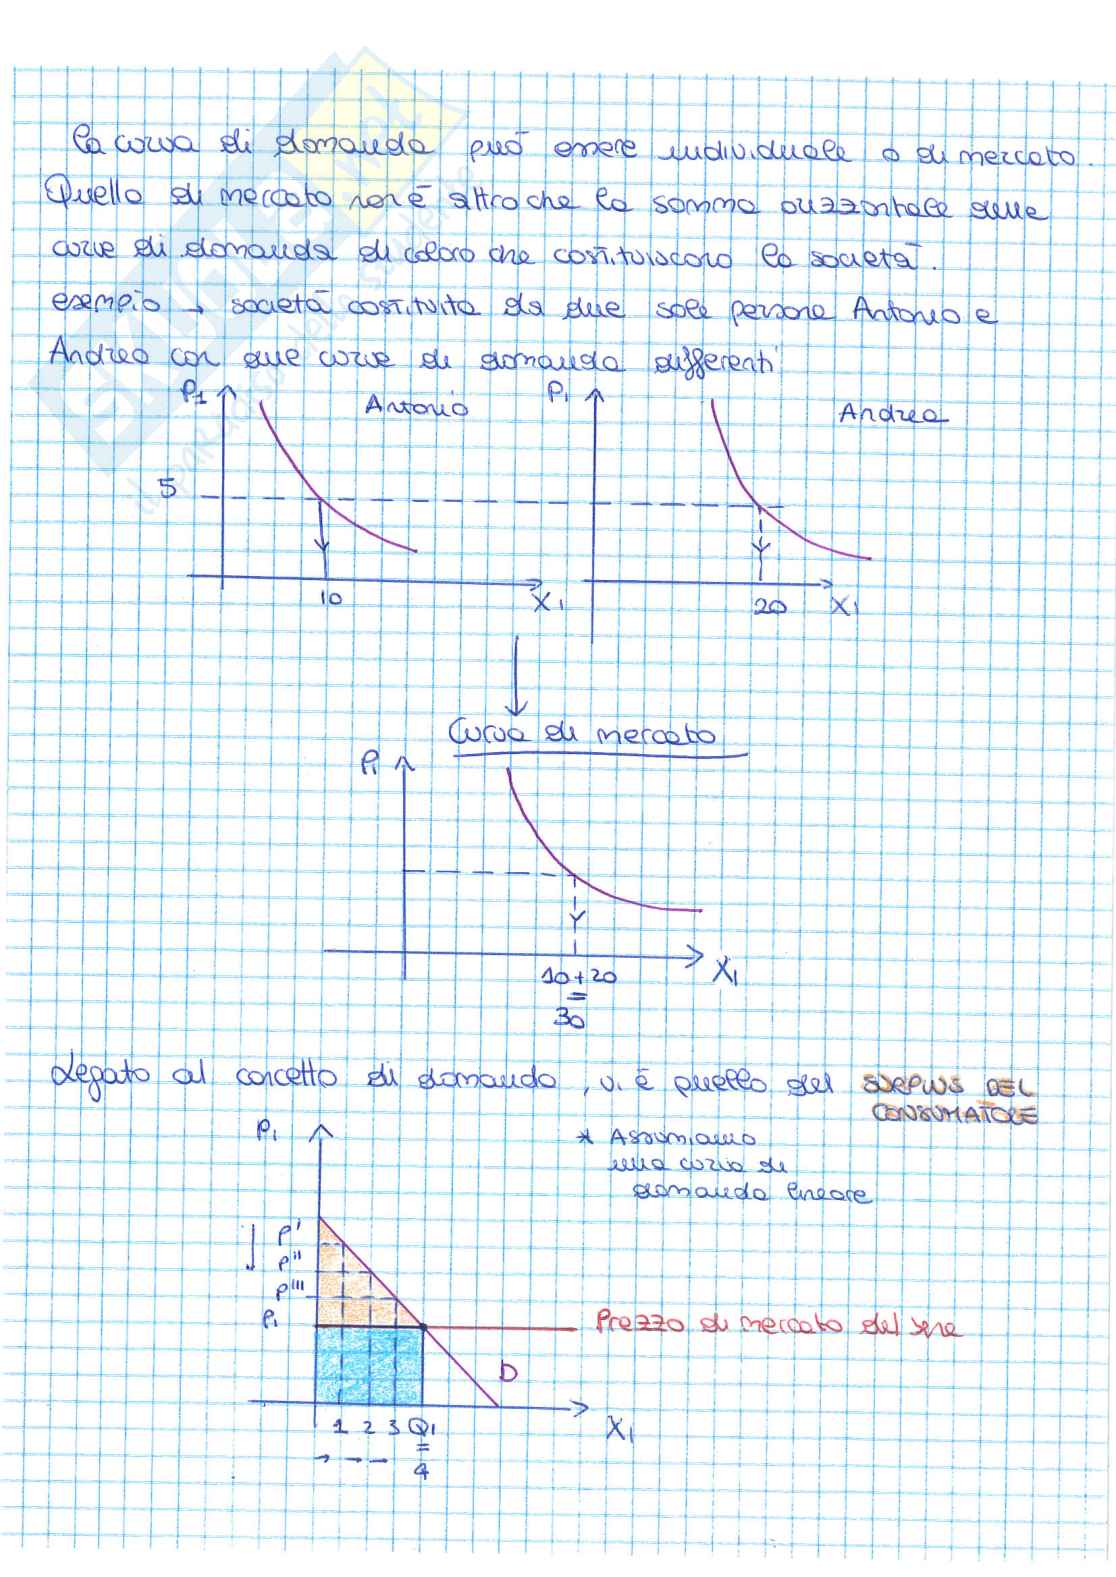 La curva di domanda può essere individuale o di mercato.
Quella di mercato non è altro che la somma orizzontale delle
curve di domanda di coloro che costituiscono la società.
esempio → società costituita da due sole persone Antonio e
Andrea con due curve di domanda differenti
P1 Antonio P1 Andrea
5
10 X1 20 X1
Curva di mercato
P1
10+20 X1
=
30
Legato al concetto di domanda, vi è quello del SURPLUS DEL
CONSUMATORE
P1 * Assumiamo
una curva di
domanda lineare
P'
P''
P'''
P1 Prezzo di mercato del bene
D
1 2 3 Q1 X1
=
4